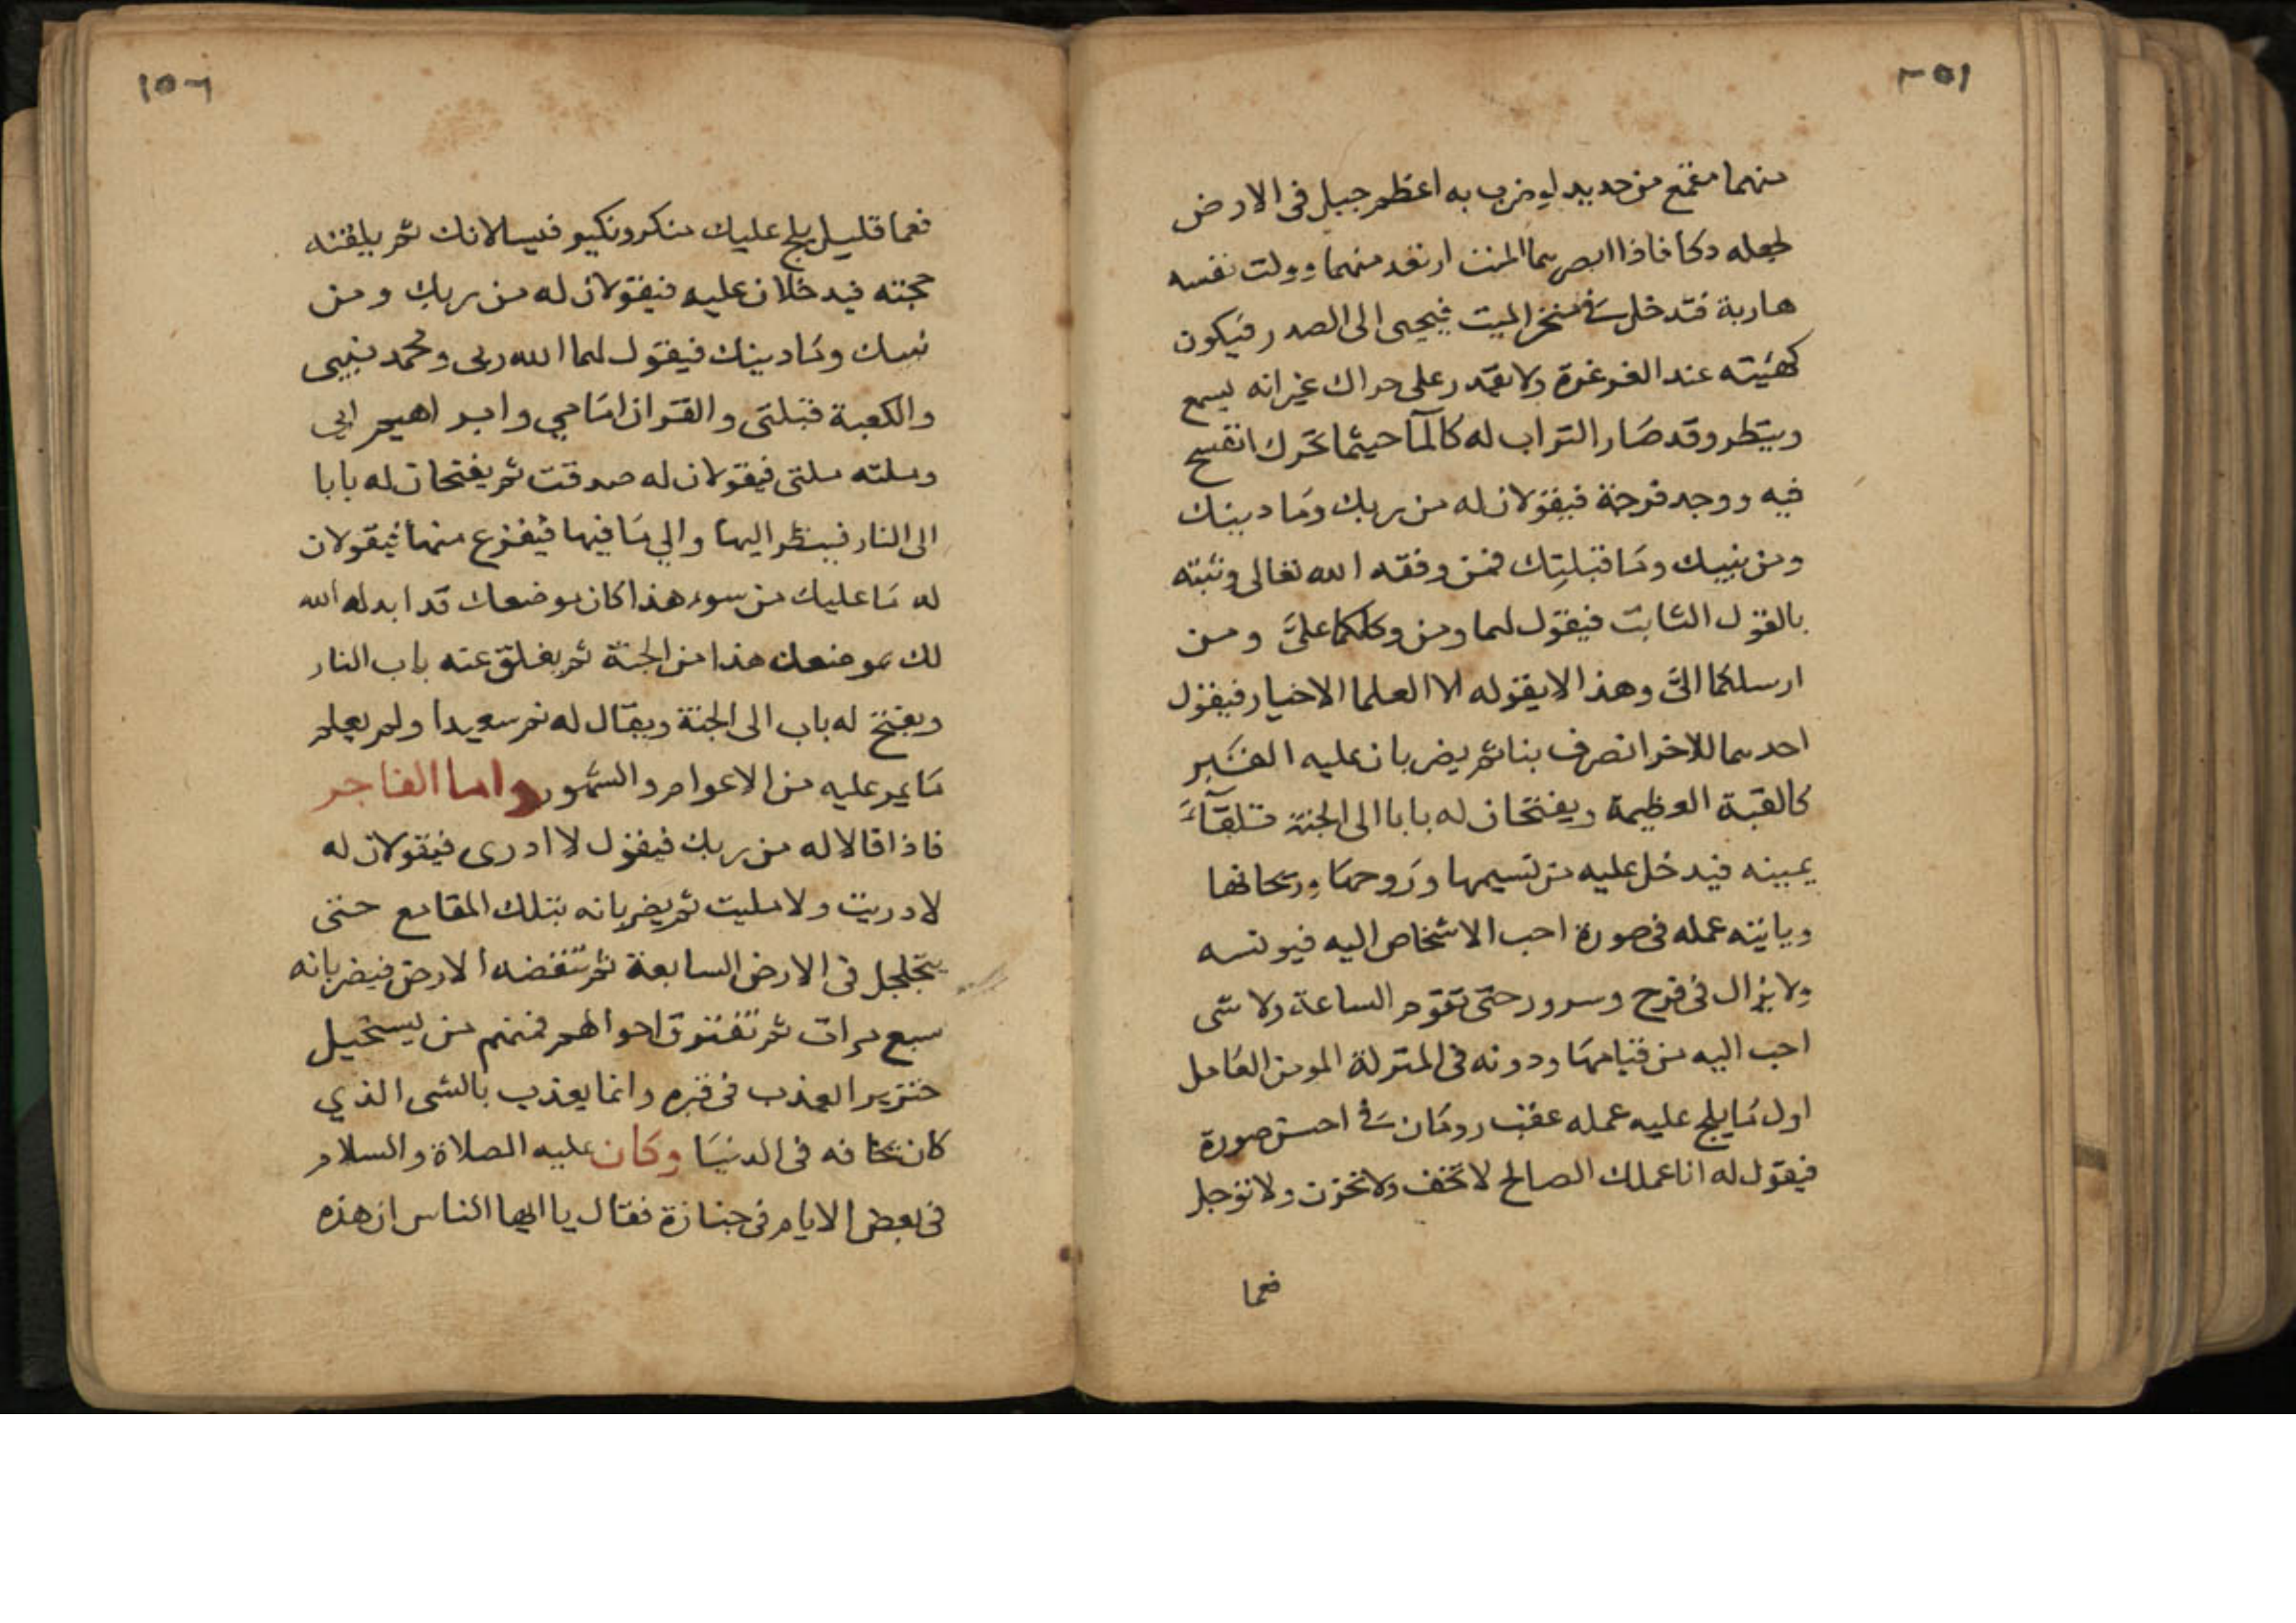 ١٥٦
منهما مقمع من حديد لو ضرب به اعظم جبل فى الارض
لجعله دكا فاذا ابصرهما الميت ارتعد منهما وولت نفسه
هاربة فتدخل فى منخر الميت فيحيى الى الصدر فيكون
كهيئته عند الغرغرة ولا يقدر على حراك غير انه يسمع
وينظر وقد صار التراب له كالمآ حيثما تحرك انفسح
فيه ووجد فرجة فيقولان له من ربك وما دينك
ومن نبيك وما قبلتك فمن وفقه الله تعالى وثبته
بالقول الثابت فيقول لهما ومن وكلكما علىَّ ومن
ارسلكما الىَّ وهذا لا يقوله الا العلما الاخيار فيقول
احدهما للاخر انصرف بنا ثم يضربان عليه القبر
كالقبة العظيمة ويفتحان له بابا الى الجنة تلقآء
يمينه فيدخل عليه من نسيمها وروحها وريحانها
وياتيه عمله فى صورة احب الاشخاص اليه فيونسه
ولا يزال فى فرح وسرور حتى تقوم الساعة ولا شى
احب اليه من قيامها ودونه فى المنزلة المومن العامل
اول ما يلج عليه عمله عقب رومان فى احسن صورة
فيقول له انا عملك الصالح لا تخف ولا تحزن ولا توجل
فعما
١٥٦
فعما قليل يلج عليك منكر ونكير فيسالانك ثم يلقنه
حجته فيدخلان عليه فيقولان له من ربك ومن
نبيك وما دينك فيقول لهما الله ربى ومحمد نبيى
والكعبة قبلتى والقران امامي وابراهيم ابي
وملته ملتى فيقولان له صدقت ثم يفتحان له بابا
الى النار فينظر اليها والي ما فيها فيفزع منها فيقولان
له ما عليك من سوء هذا كان موضعك قد ابدله الله
لك موضعك هذا من الجنة ثم يغلق عنه باب النار
ويفتح له باب الى الجنة ويقال له نم سعيدا ولم يعلم
ما يمر عليه من الاعوام والشهور واما الفاجر
فاذا قالا له من ربك فيقول لا ادرى فيقولان له
لا دريت ولا تليت ثم يضربانه بتلك المقامع حتى
يتجلجل فى الارض السابعة ثم تنفضه الارض فيضربانه
سبع مرات ثم تفترق احوالهم فمنهم من يستحيل
خنزير العذب فى قبره وانما يعذب بالشى الذي
كان يخافه فى الدنيا وكان عليه الصلاة والسلام
فى بعض الايام فى جنازة فقال يا ايها الناس ان هذه